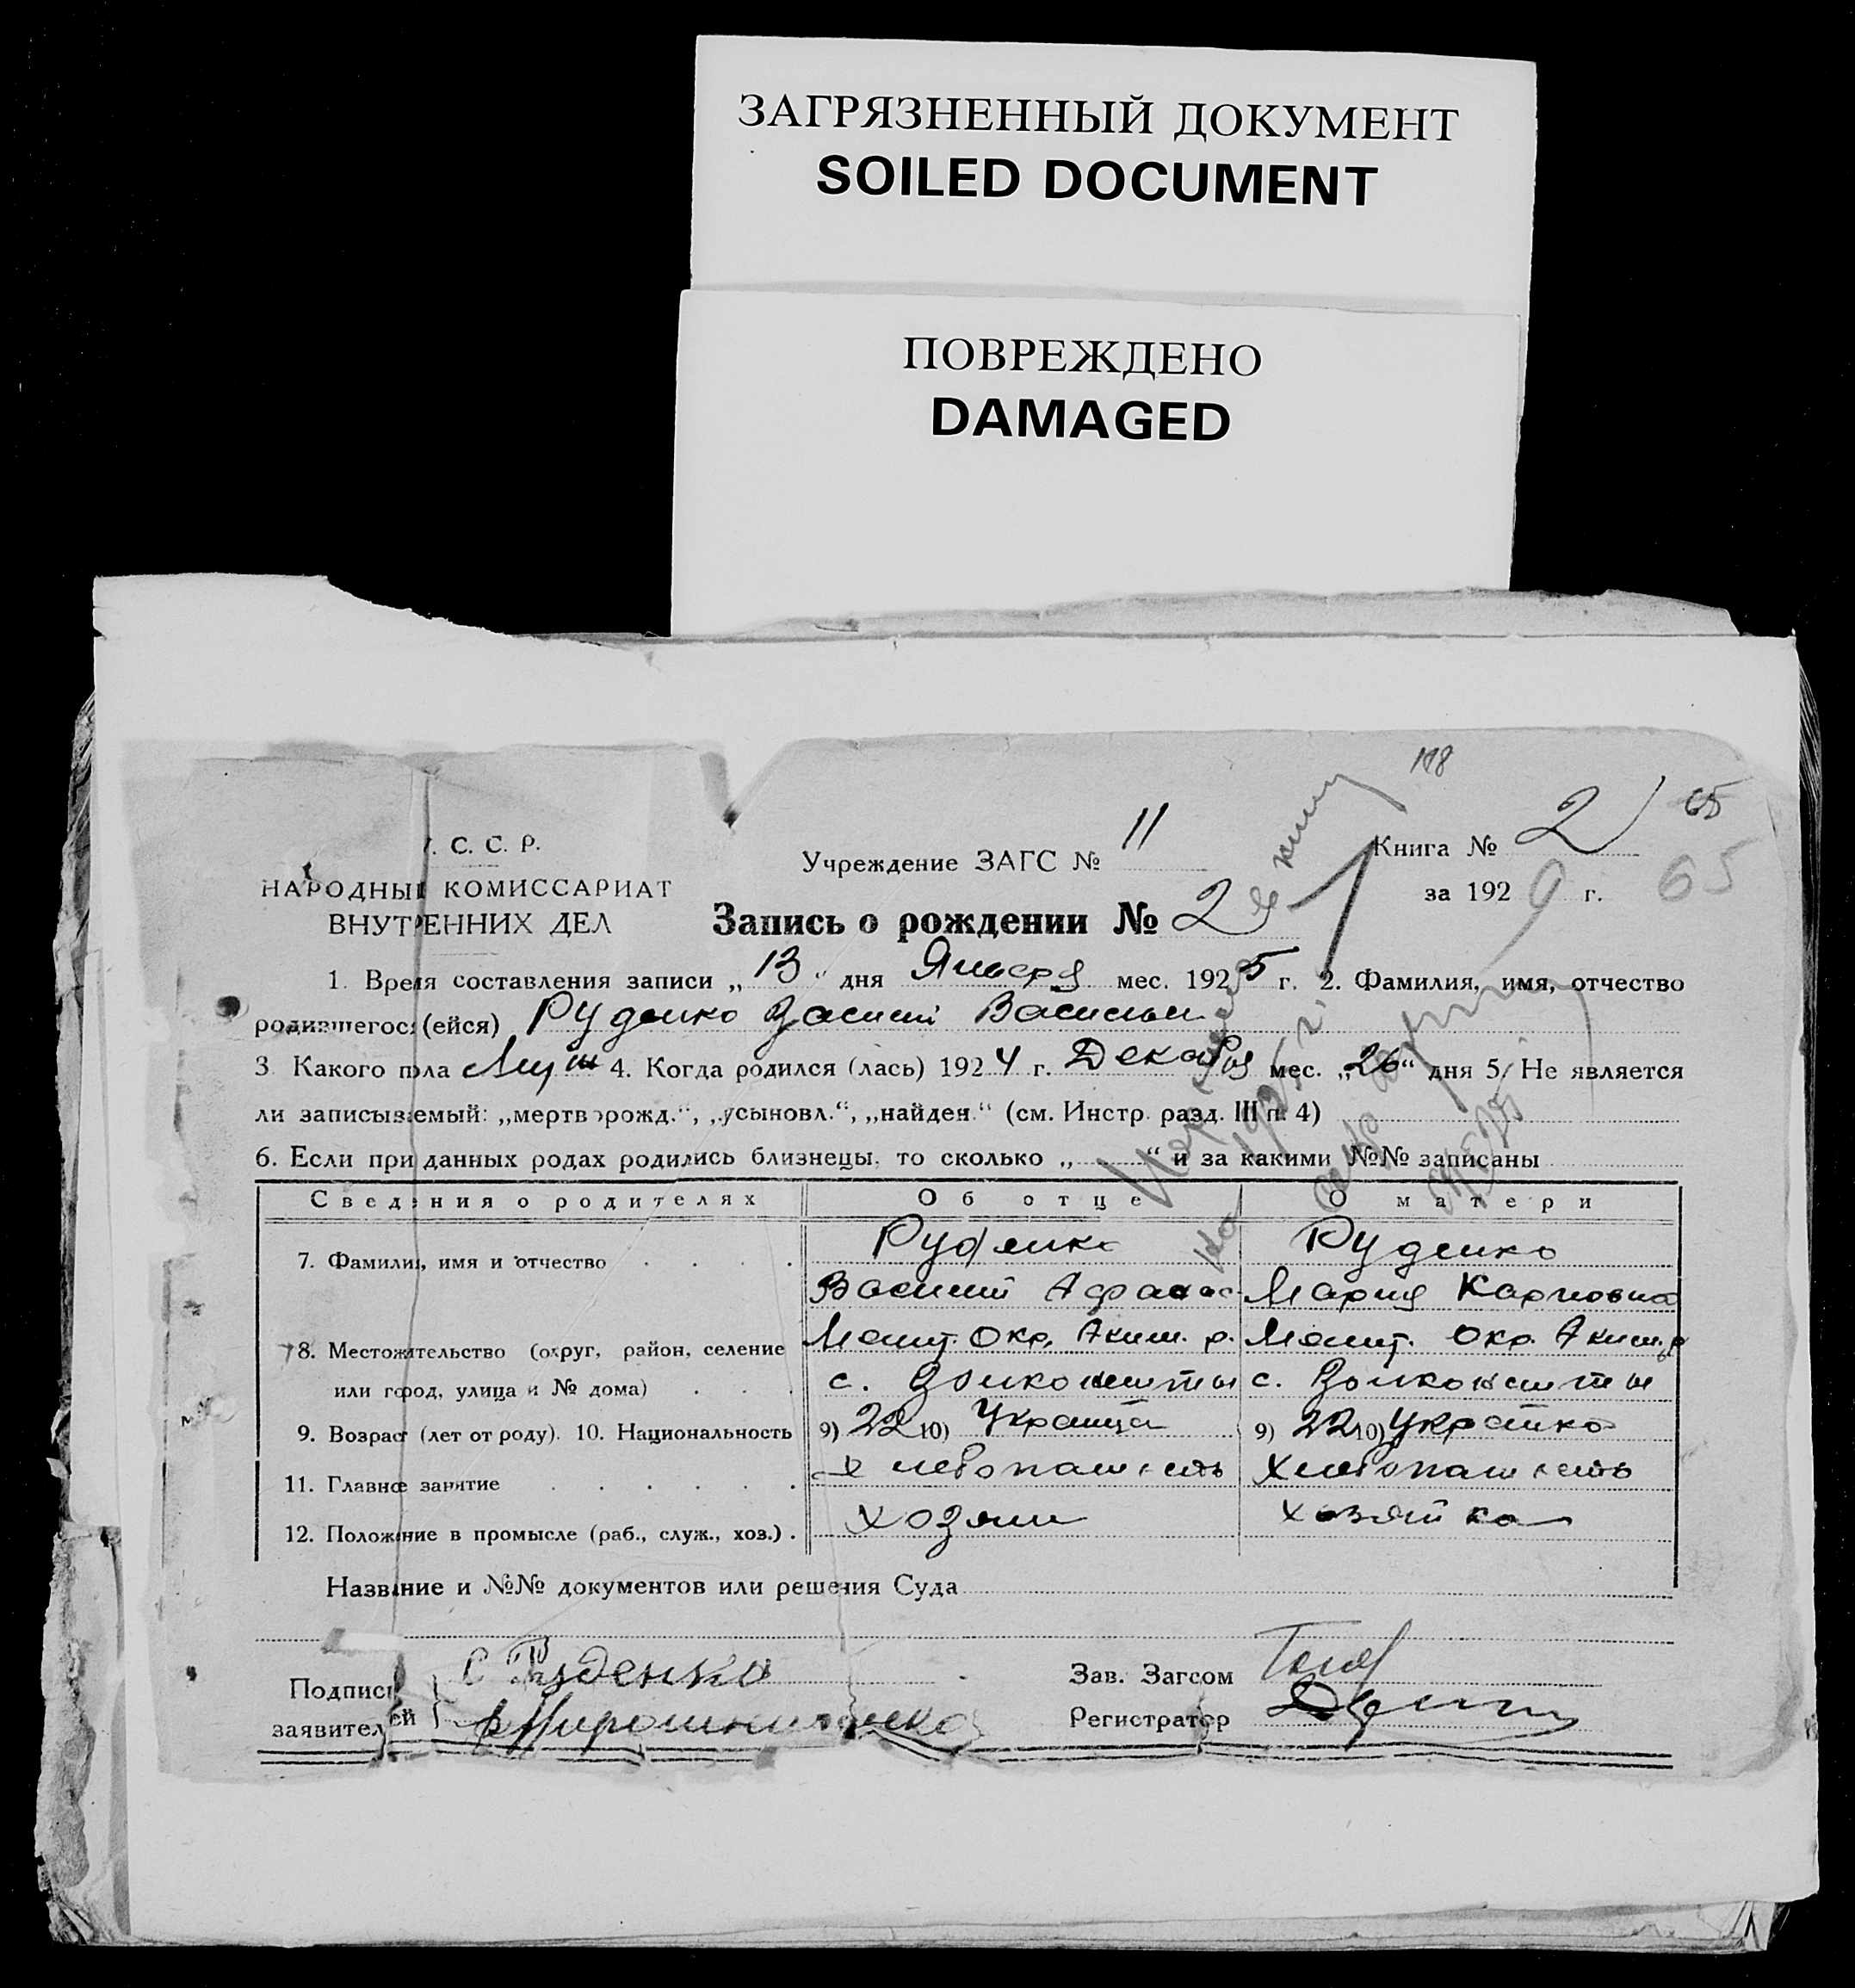 ЗАГРЯЗНЕННЫЙ ДОКУМЕНТ
SOILED DOCUMENT
ПОВРЕЖДЕНО
DAMAGED
118
65
65
. С. С. Р.
НАРОДНЫЙ КОМИССАРИАТ
ВНУТРЕННИХ ДЕЛ
Учреждение ЗАГС № 11
Книга № 2
за 192 г.
Запись о рождении № 2
1. Время составления записи „13“ дня Января мес. 1925 г. 2. Фамилия, имя, отчество
родившегося (ейся) Руденко Василий Васильев
3. Какого пола Муж 4. Когда родился (лась) 1924 г. Декабря мес. „26“ дня 5. Не является
ли записываемый: „мертворожд.“, „усыновл.“, „найден.“ (см. Инстр. разд. III п. 4)
6. Если при данных родах родились близнецы, то сколько „ “ и за какими №№ записаны
Сведения о родителях Об отце О матери
7. Фамилия, имя и отчество . . . . Руденко Руденко
Василий Афанас Мария Карповна
8. Местожительство (округ, район, селение Мелит. Окр. Аким. р. Мелит. Окр. Аким. р
или город, улица и № дома) . . . с. с.
9. Возраст (лет от роду). 10. Национальность 9) 22 10) Украинца 9) 22 10) Украинка
11. Главное занятие . . . . . . Хлебопашество Хлебопашество
12. Положение в промысле (раб., служ., хоз.) . Хозяин Хозяйка
Название и №№ документов или решения Суда
Подписи заявителей С Руденко
Мирошниченко
Зав. Загсом
Регистратор